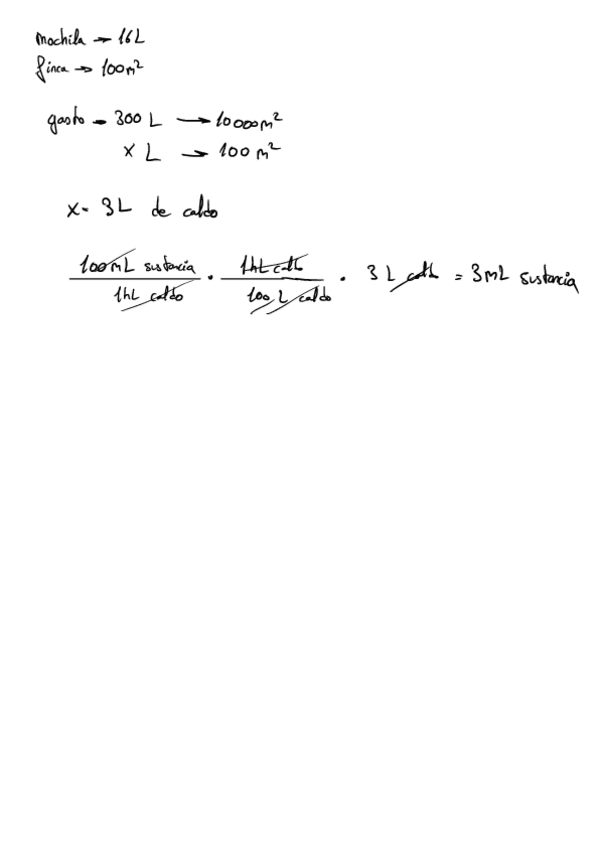 mochila → 16L
finca → 100m²
gasto → 300 L → 10000m²
x L → 100 m²
x = 3L de caldo
100mL sustancia / 1hL caldo · 1hL caldo / 100 L caldo · 3 L caldo = 3mL sustancia